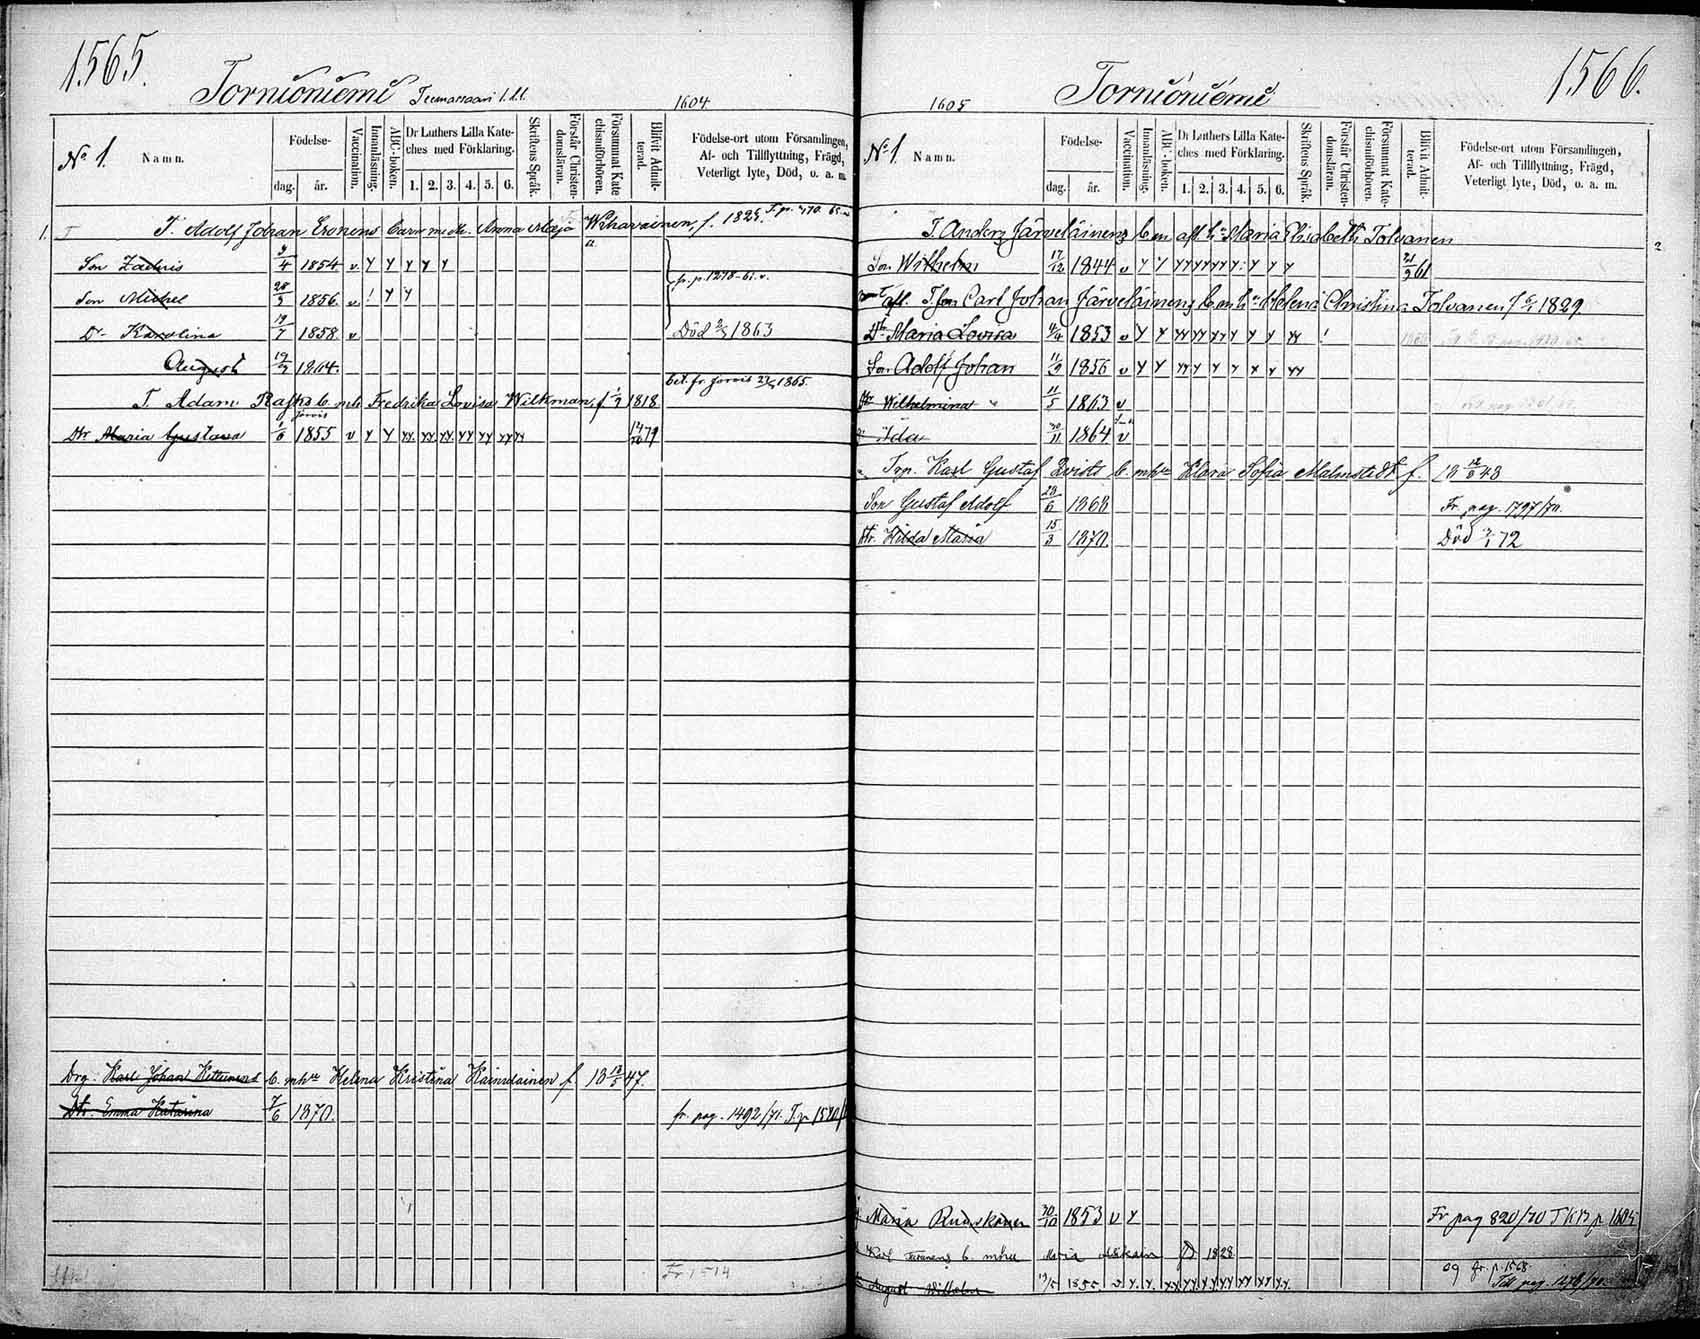 1565.
Tornioniemi
1604
No 1. Namn.
Födelse-
dag. år.
Vaccination.
Innanläsning.
ABC-boken.
Dr Luthers Lilla Kate-
ches med Förklaring.
1. 2. 3. 4. 5. 6.
Skriftens Språk.
Förstår Christen-
domsläran.
Försummat Kate
chismiförhören.
Blifvit Admit-
terad.
Födelse-ort utom Församlingen,
Af- och Tillflyttning, Frägd,
Veterligt lyte, Död, o. a. m.
1. T. Adolf Johan Eronens barn m. Anna Maja Wihavainen, f. 1825.
Son Zachris 1854 v. y y y y y
fr. p. 1278-61. v.
Son Michel 28/9 1856. v. ! y y
Dr Karolina 19/7 1858. v Död 1863
August 1864.
bet. fr. Jorvis 1865.
T. Adam Raska b. mh Fredrika Lovisa Wilkman, f 1818
Jorvis
Dtr Maria Gustava 1/6 1855 v y y yy. yy. yy. yy yy yyy 79
Drg. Karl Johan Kettunens b. mhu Helena Kristina Kainulainen f. 18 13/5 47.
Dtr. Emma Katarina 7/6 1870. fr. pag. 1492/71.
Fr 1514
1566.
Tornioniemi
1605
No 1. Namn.
Födelse-
dag. år.
Vaccination.
Innanläsning.
ABC-boken.
Dr Luthers Lilla Kate-
ches med Förklaring.
1. 2. 3. 4. 5. 6.
Skriftens Språk.
Förstår Christen-
domsläran.
Försummat Kate-
chismiförhören.
Blifvit Admit-
terad.
Födelse-ort utom Församlingen,
Af- och Tillflyttning, Frägd,
Veterligt lyte, Död, o. a. m.
T. Anders Järveläinens b m afl. h. Maria Elisabeth Tolvanen
2
Son Wilhelm 17/12 1844 v y y yy yy yy y y y 61
afl. T. Carl Johan Järveläinens b m h. Helena Christina Tolvanen f 1829
Dr Maria Lovisa 4/4 1853 v y y yy yy yy y y y yy !
Son Adolf Johan 11/9 1856 v y y yy y y y x y yy
Dtr Wilhelmina 11/5 1863 v
Ida 30/11 1864 v
Trp. Karl Gustaf Qvists b. mhu Klara Sofia Malmstedt f. 18 12/8 43
Son Gustaf Adolf 28/6 1868 Fr. pag. 1797/70.
Dtr. Hilda Maria 15/3 1870. Död 72
Maria Ruuskanen 30/10 1853 v y Fr pag 820/70 T K B p 1605
Karl b. mhu Maria 1828
og fr. p. 1568
August Wilhelm 1855 v y. y. yy yy yy yy yy yy yy. Till pag. 1276/70.